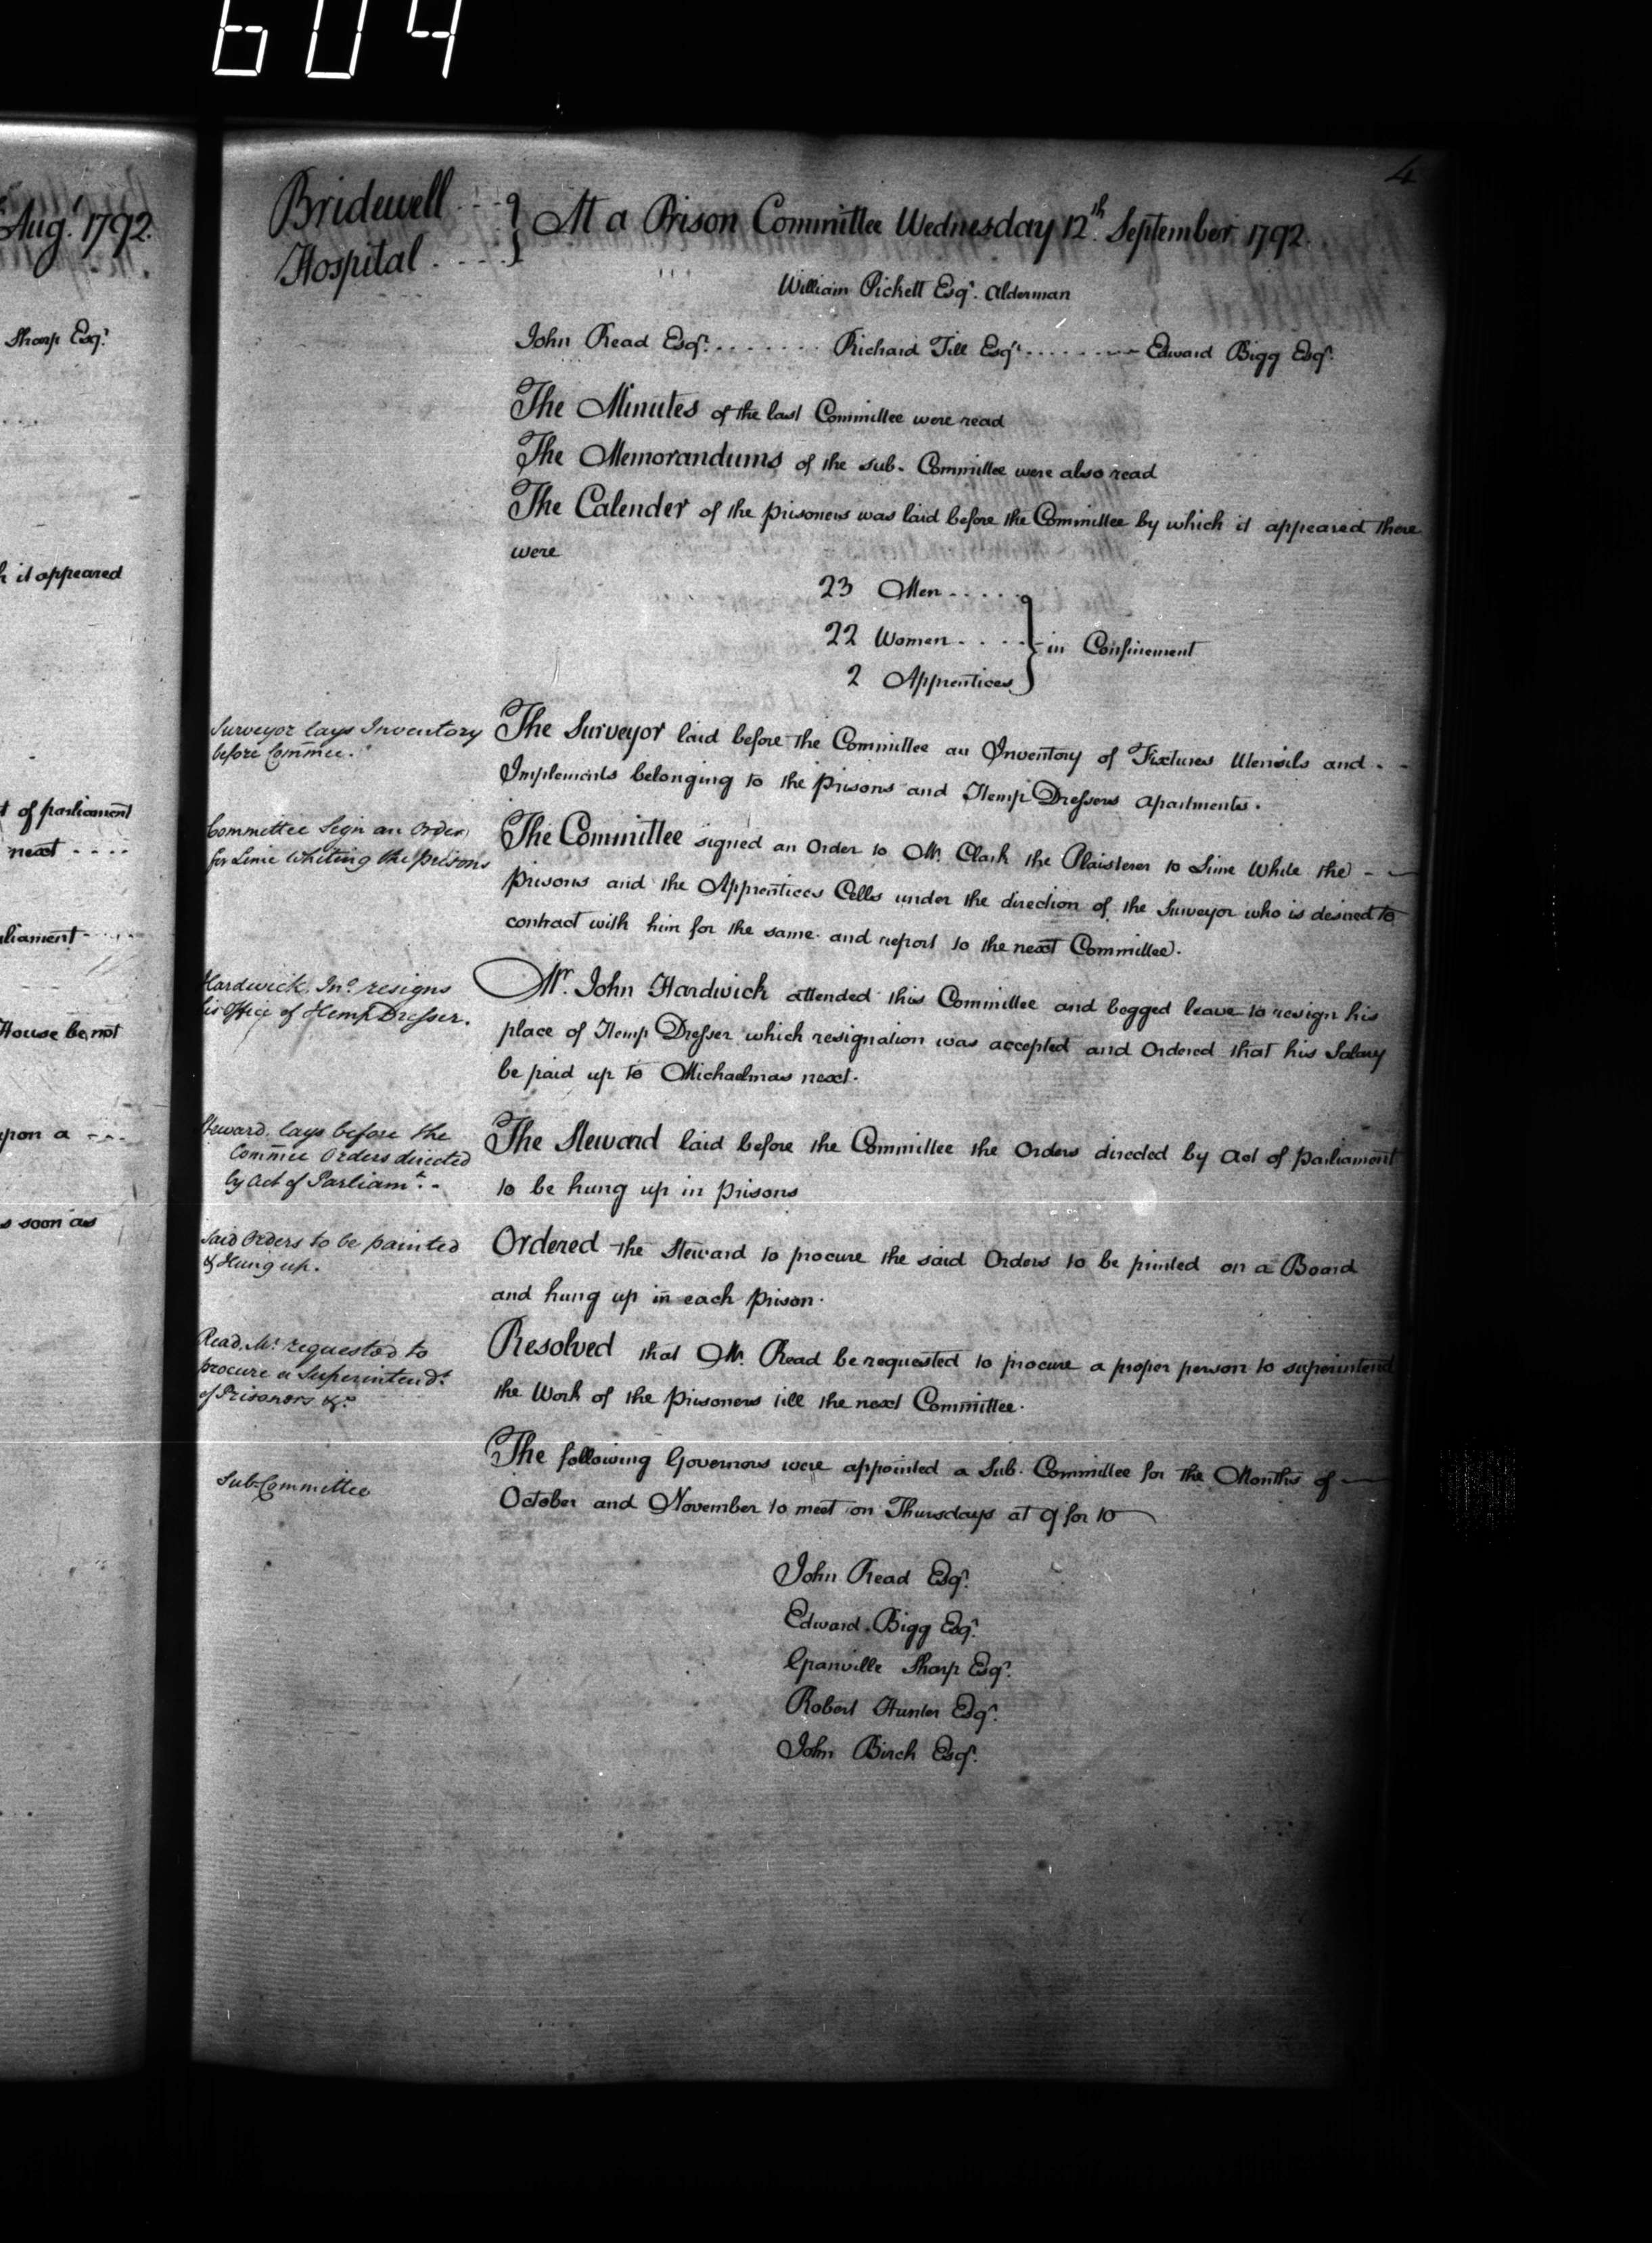 604
Aug.t 1792.
Sharp Esq.r
h it appeared
t of parliament
next ....
liament
House be not
upon a
s soon as
4
Bridewell
Hospital
At a Prison Committee Wednesday 12.th September 1792.
William Pickett Esq.r Alderman
John Read Esq.r ....... Richard Till Esq.r ....... Edward Bigg Esq.r
The Minutes of the last Committee were read
The Memorandums of the sub-Committee were also read
The Calender of the prisoners was laid before the Committee by which it appeared there
were
23 Men .....
22 Women .... } in Confinement
2 Apprentices
Surveyor lays Inventory
before Commee.
The Surveyor laid before the Committee an Inventory of Fixtures Utensils and - -
Implements belonging to the prisons and Hemp Dressers apartments.
Committee Sign an Order
for Lime Whiting the prisons
The Committee signed an Order to Mr. Clark the Plaisterer to Lime White the - -
prisons and the Apprentices Cells under the direction of the Surveyor who is desired to
contract with him for the same and report to the next Committee.
Hardwick, Jno. resigns
his Office of Hemp Dresser.
Mr. John Hardwick attended this Committee and begged leave to resign his
place of Hemp Dresser which resignation was accepted and Ordered that his Salary
be paid up to Michaelmas next.
Steward lays before the
Commee Orders directed
by Act of Parliamt. -
The Steward laid before the Committee the Orders directed by Act of parliament
to be hung up in prisons
Said Orders to be painted
& Hung up.
Ordered the Steward to procure the said Orders to be printed on a Board
and hung up in each prison.
Read, Mr. requested to
procure a Superintendt.
of Prisoners &c.
Resolved that Mr. Read be requested to procure a proper person to superintend
the Work of the prisoners till the next Committee.
Sub-Committee
The following Governors were appointed a Sub-Committee for the Months of
October and November to meet on Thursdays at 9 for 10
John Read Esq.r
Edward Bigg Esq.r
Granville Sharp Esq.r
Robert Hunter Esq.r
John Birch Esq.r